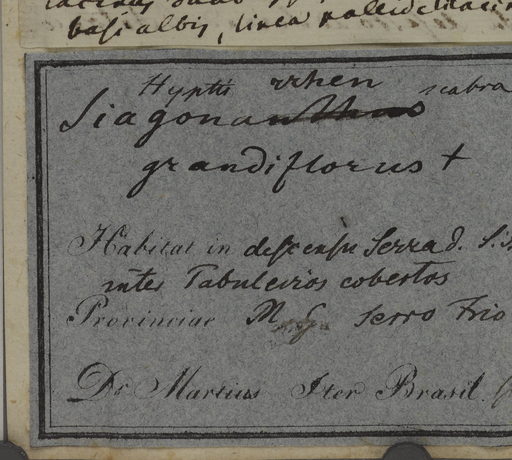 basi albis, linea
Hyptis rrhen scabra
Siagonanthus
grandiflorus +
Habitat in descensu Serra d. S.
inter Tabuleiros cobertos
Provinciae M G Serro Frio
Dr Martius Iter Brasil.